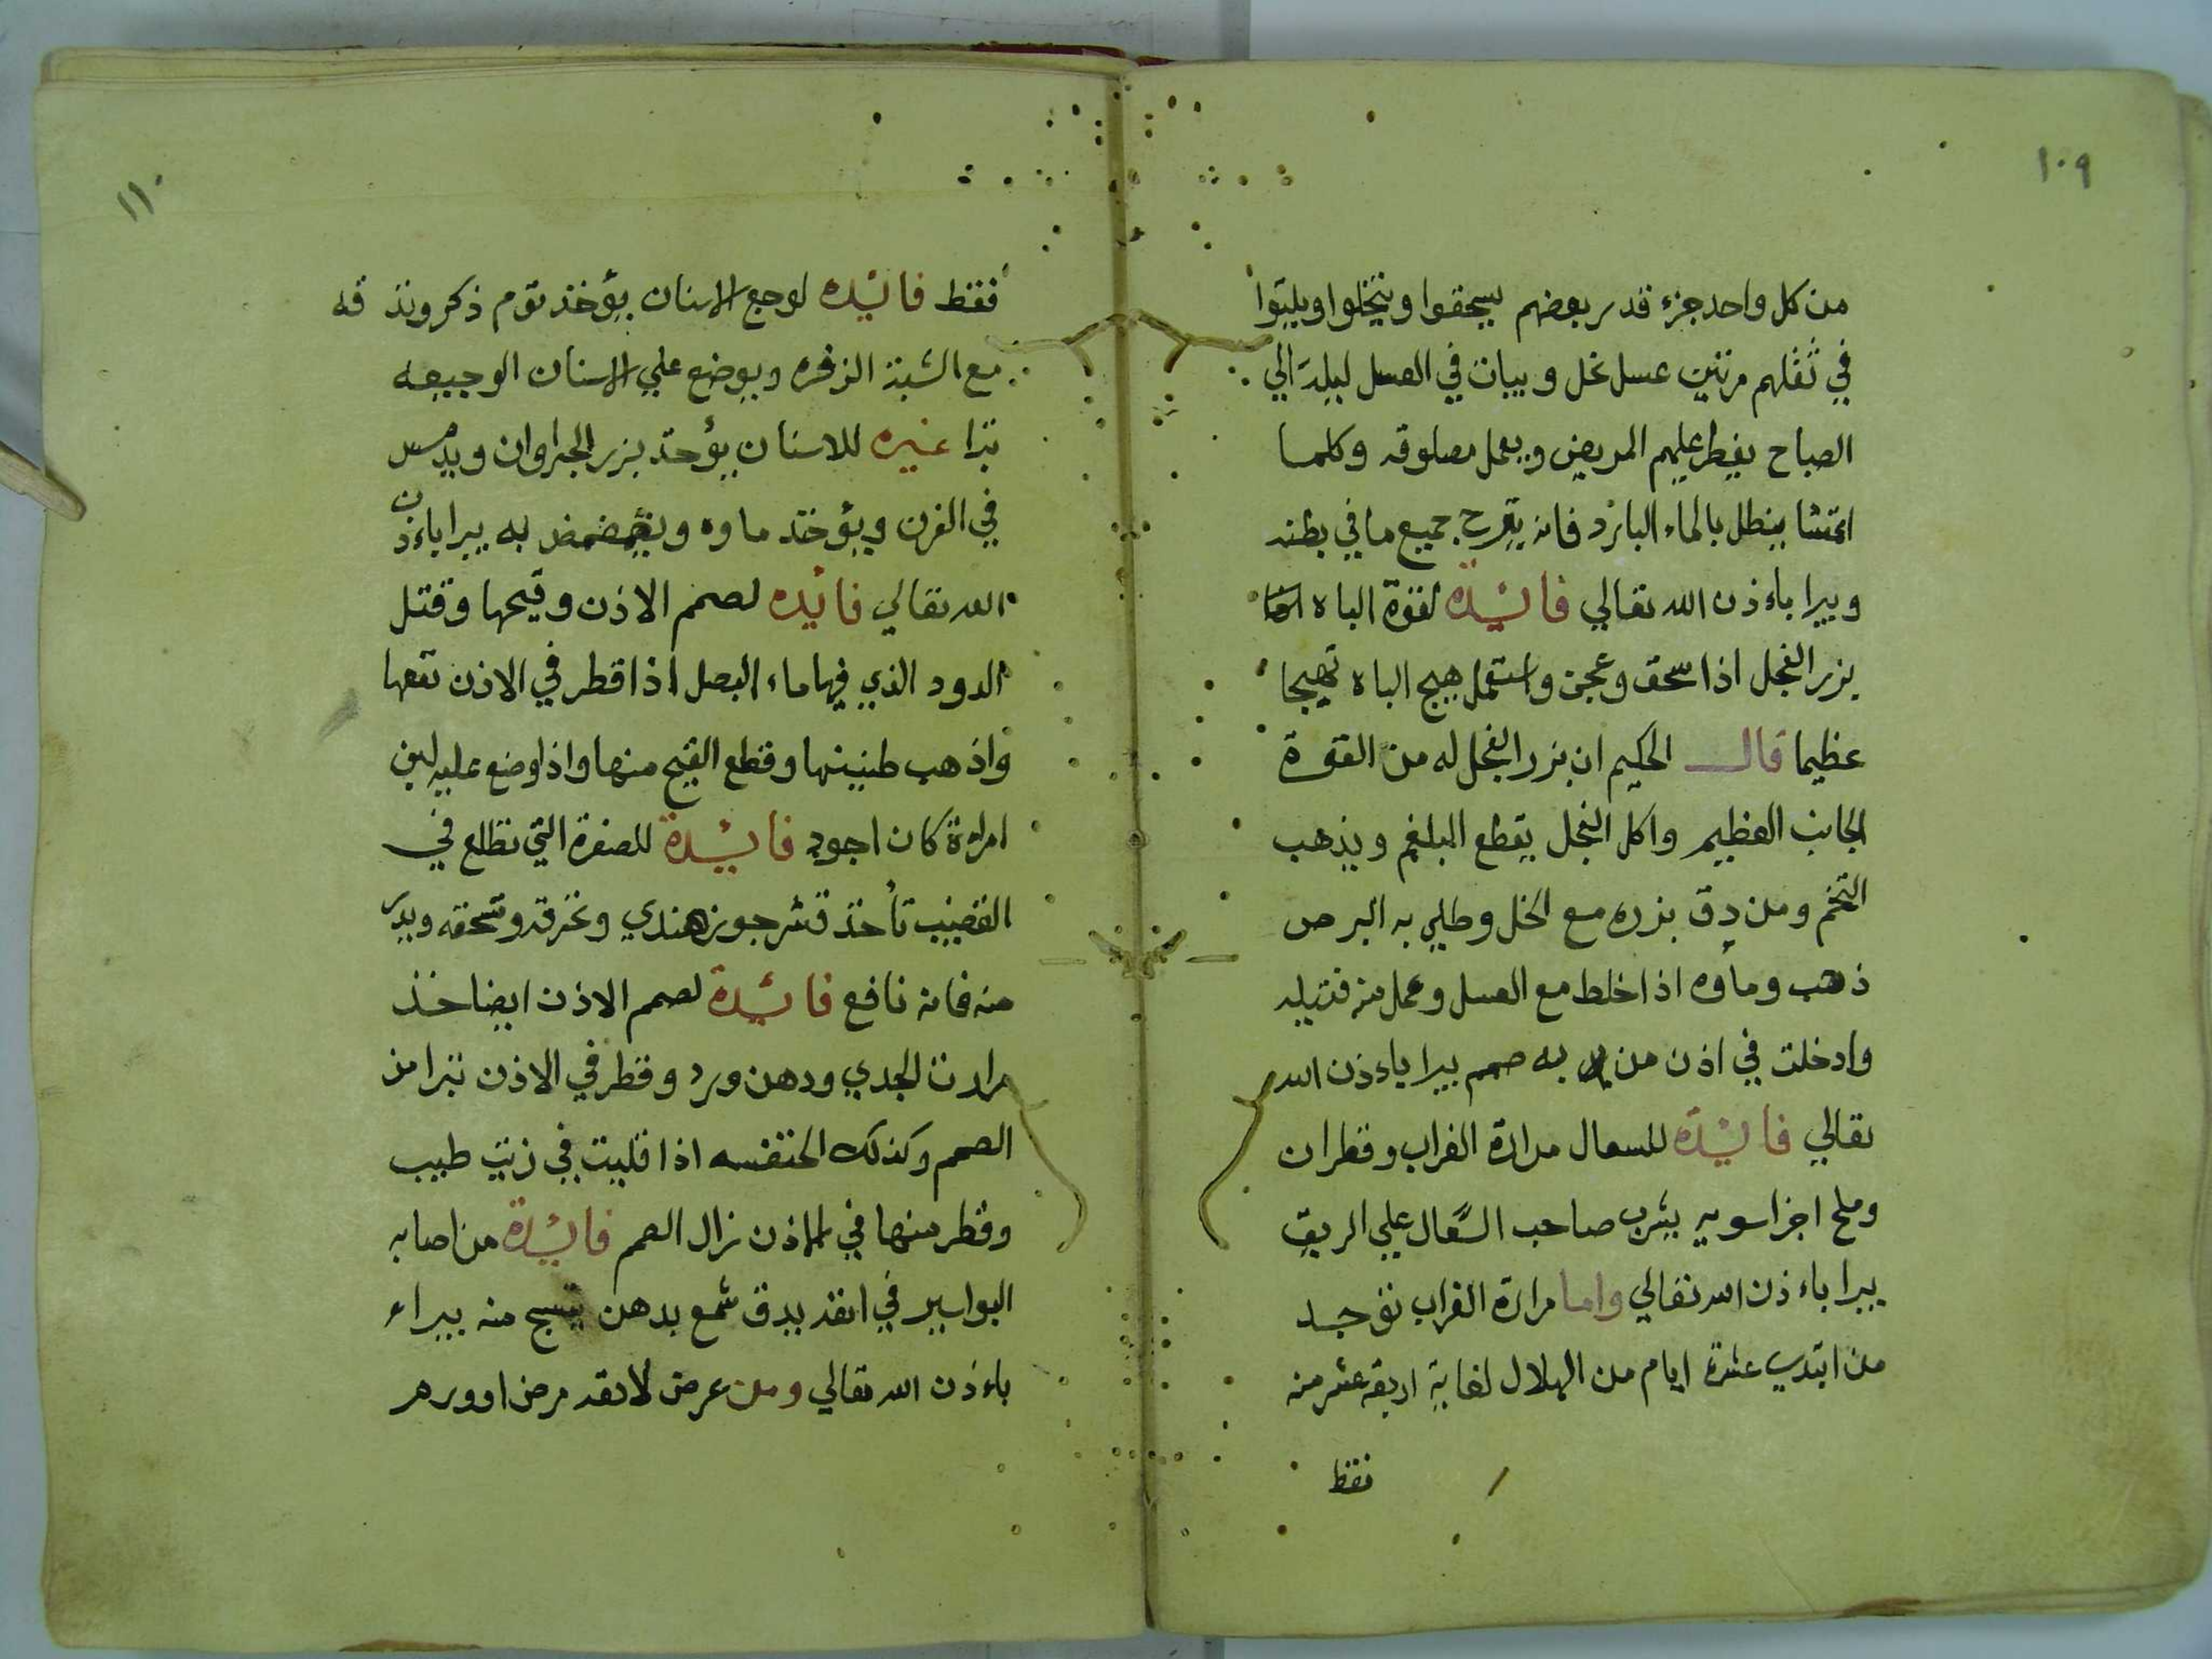 ١٠٩
من كل واحد جزء قدر بعضهم يسحقوا وينخلوا ويلتوا
في ثقلهم مرتين عسل نحل ويبات في العسل ليلة الي
الصباح يفطر عليهم المريض ويعمل مصلوقه وكلما
اتمشا ينطل بالماء البارد فانه يقرح جميع ما في بطنه
ويبرا باءذن الله تعالي فائيده لقوة الباه
بزر الفجل اذا سحق وعجن واستعمل هيج الباه تهيجا
عظيما قال الحكيم ان بزر الفجل له من القوة
الجانب العظيم واكل الفجل يقطع البلغم ويذهب
التخم ومن دق بزره مع الخل وطلي به البرص
ذهب وماؤه اذا خلط مع العسل وعمل منه فتيله
وادخلت في اذن من به صمم يبرا باءذن الله
تعالي فائيده للسعال مرارة الغراب وقطران
وملح اجزا سويه يشرب صاحب السعال علي الريق
يبرا باءذن الله تعالي واما مرارة الغراب توجد
من ابتدي عشرة ايام من الهلال لغاية اربعة عشر منه
فقط
١١٠
فقط فائيده لوجع الاسنان يؤخذ توم ذكر وندقه
مع الشبة الزفره ويوضع علي الاسنان الوجيعه
تبرا غيره للاسنان يؤخذ بزر الجراوان ويدمس
في الفرن ويؤخذ ماوه ويتمضمض به يبرا باءذن
الله تعالي فائيده لصمم الاذن وقيحها وقتل
الدود الذي فيها ماء البصل اذا قطر في الاذن نفعها
واذهب طنينها وقطع القيح منها واذا وضع عليه لبن
امراءة كان اجود فائيدة للصفرة التي تطلع في
القضيب تأخذ قشر جوز هندي وتحرقه وتسحقه ويدر
منه فانه نافع فائيدة لصمم الاذن ايضا خذ
مرارت الجدي ودهن ورد وقطر في الاذن تبرا من
الصمم وكذلك الخنفسه اذا قليت في زيت طيب
وقطر منها في الاذن زال الصمم فائيدة من اصابه
البواسير في انفه يدق شمع بدهن منه يبراء
باءذن الله تعالي ومن عرض لانفه مرض او ورم